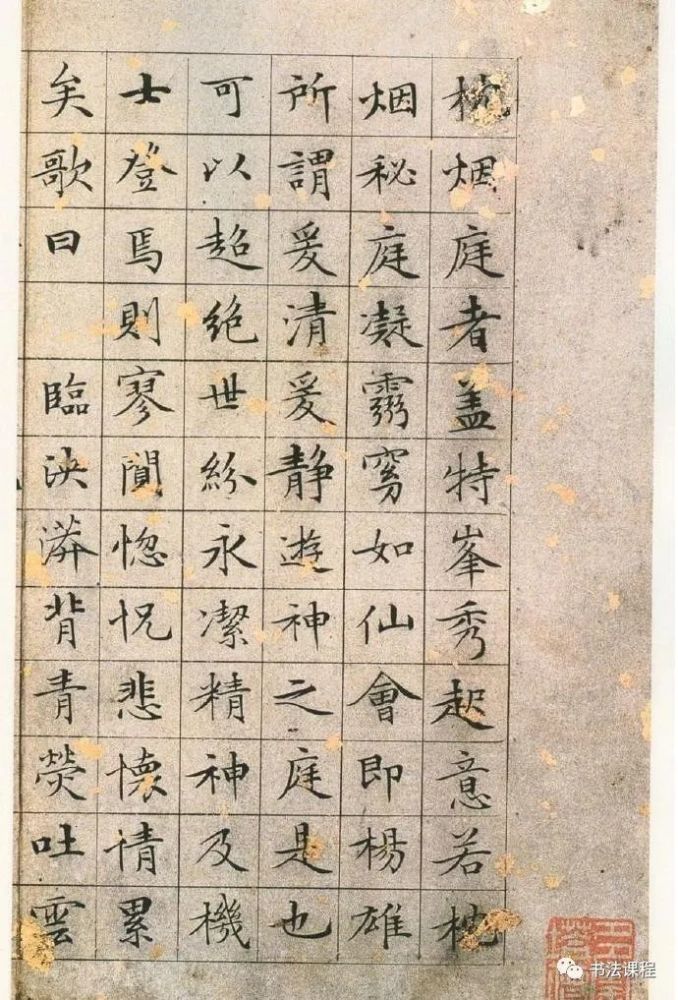 枕烟庭者盖特峯秀起意若枕
烟秘庭凝如仙會即楊雄
所謂爰清爰静遊神之庭是也
可以超絶世紛永潔精神及機
士登焉則寥闃惚怳悲懷情累
矣歌曰 臨泱漭背青熒吐雲
书法课程